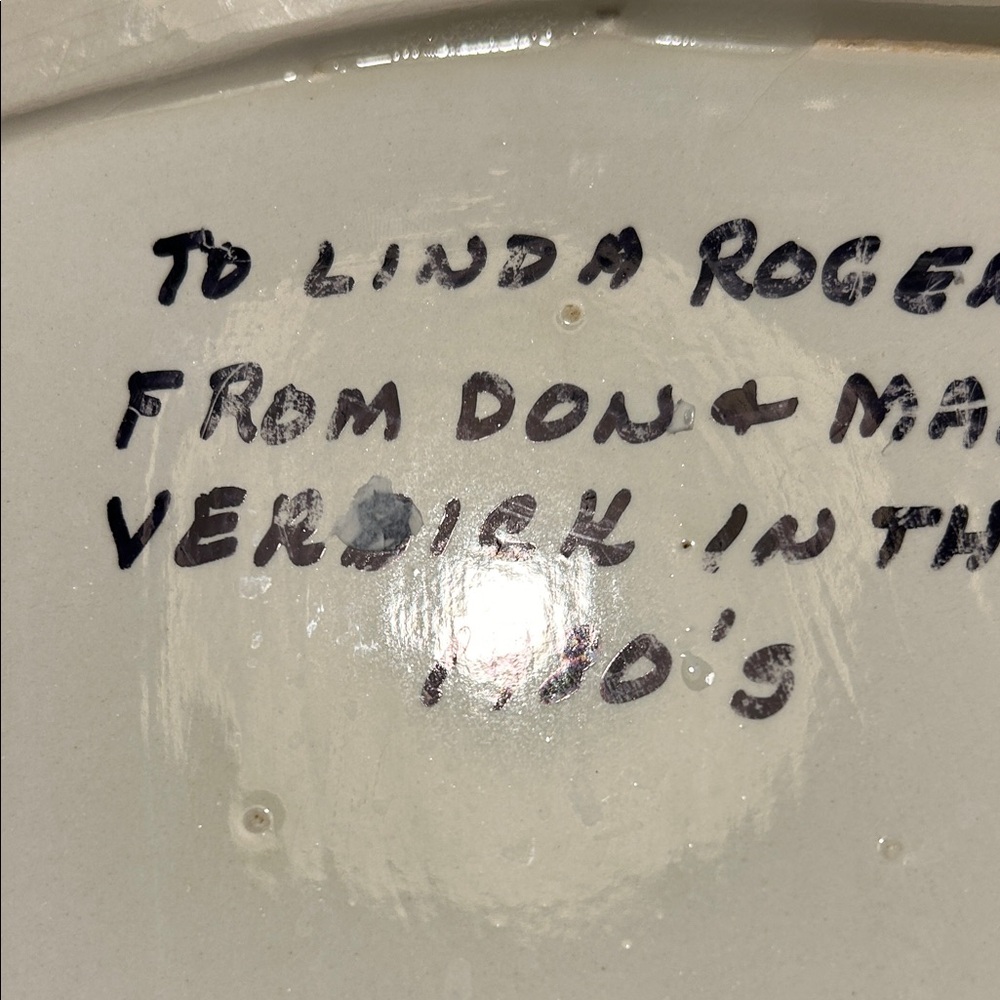 TO LINDA ROGER
FROM DON & MA
VERDICK IN TH